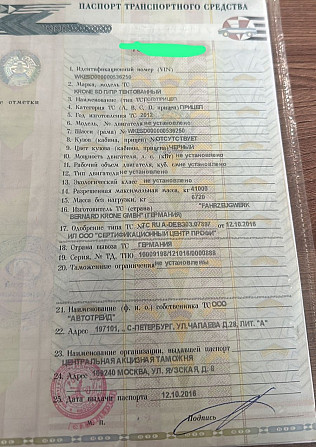 ПАСПОРТ ТРАНСПОРТНОГО СРЕДСТВА
е отметки
1. Идентификационный номер (VIN)
WKESD000000536250
2. Марка, модель ТС
KRONE SD П/ПР ТЕНТОВАННЫЙ
3. Наименование (тип ТС) ПОЛУПРИЦЕП
4. Категория ТС (А, В, С, D, прицеп) ПРИЦЕП
5. Год изготовления ТС 2012
6. Модель, № двигателя не установлено
7. Шасси (рама) № WKESD000000536250
8. Кузов (кабина, прицеп) № ОТСУТСТВУЕТ
9. Цвет кузова (кабины, прицепа) ЧЕРНЫЙ
10. Мощность двигателя, л. с. (кВт) не установлено
11. Рабочий объем двигателя, куб. см не установлено
12. Тип двигателя не установлено
13. Экологический класс не установлено
14. Разрешенная максимальная масса, кг 41000
15. Масса без нагрузки, кг 6720
16. Изготовитель ТС (страна) "FAHRZEUGWERK
BERNARD KRONE GMBH" (ГЕРМАНИЯ)
17. Одобрение типа ТС № ТС RU А-DE от 12.10.2016
ИЛ ООО "СЕРТИФИКАЦИОННЫЙ ЦЕНТР ПРОФИ"
18. Страна вывоза ТС ГЕРМАНИЯ
19. Серия, № ТД, ТПО 10009198/121016/0000888
20. Таможенные ограничения не установлены
21. Наименование (ф. и. о.) собственника ТС ООО
"АВТОТРЕЙД"
22. Адрес 197101, С-ПЕТЕРБУРГ, УЛ.ЧАПАЕВА Д.28, ЛИТ. "А"
23. Наименование организации, выдавшей паспорт
ЦЕНТРАЛЬНАЯ АКЦИЗНАЯ ТАМОЖНЯ
24. Адрес 109240 МОСКВА, УЛ. ЯУЗСКАЯ, Д. 8
25. Дата выдачи паспорта 12.10.2016
М. п. Подпись